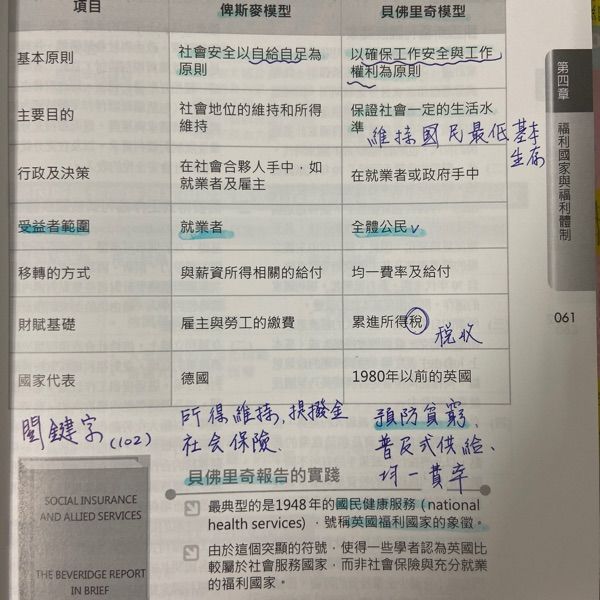 項目 俾斯麥模型 貝佛里奇模型
基本原則 社會安全以自給自足為 以確保工作安全與工作
原則 權利為原則
主要目的 社會地位的維持和所得 保證社會一定的生活水
維持 準 維持國民最低基本
生活
行政及決策 在社會合夥人手中，如 在就業者或政府手中
就業者及雇主
受益者範圍 就業者 全體公民
移轉的方式 與薪資所得相關的給付 均一費率及給付
財賦基礎 雇主與勞工的繳費 累進所得稅
稅收
國家代表 德國 1980年以前的英國
關鍵字(102) 所得維持,提撥金 預防貧窮、
社会保險. 普及式供給、
均一費率
第四章 福利國家與福利體制
061
SOCIAL INSURANCE
AND ALLIED SERVICES
THE BEVERIDGE REPORT
IN BRIEF
貝佛里奇報告的實踐
最典型的是1948年的國民健康服務（national
health services），號稱英國福利國家的象徵。
由於這個突顯的符號，使得一些學者認為英國比
較屬於社會服務國家，而非社會保險與充分就業
的福利國家。